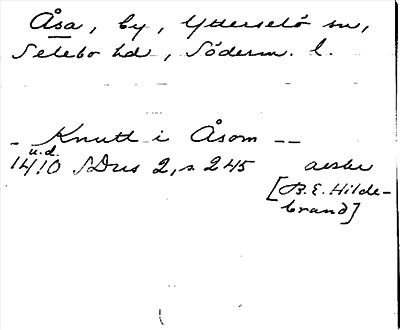 Åsa, by, Ytterselö sn,
Selebo hd, Söderm. l.
_ Knutt i Åsom --
u.d.
1410 SDns 2, s. 245 avskr
[B.E. Hilde-
brand]